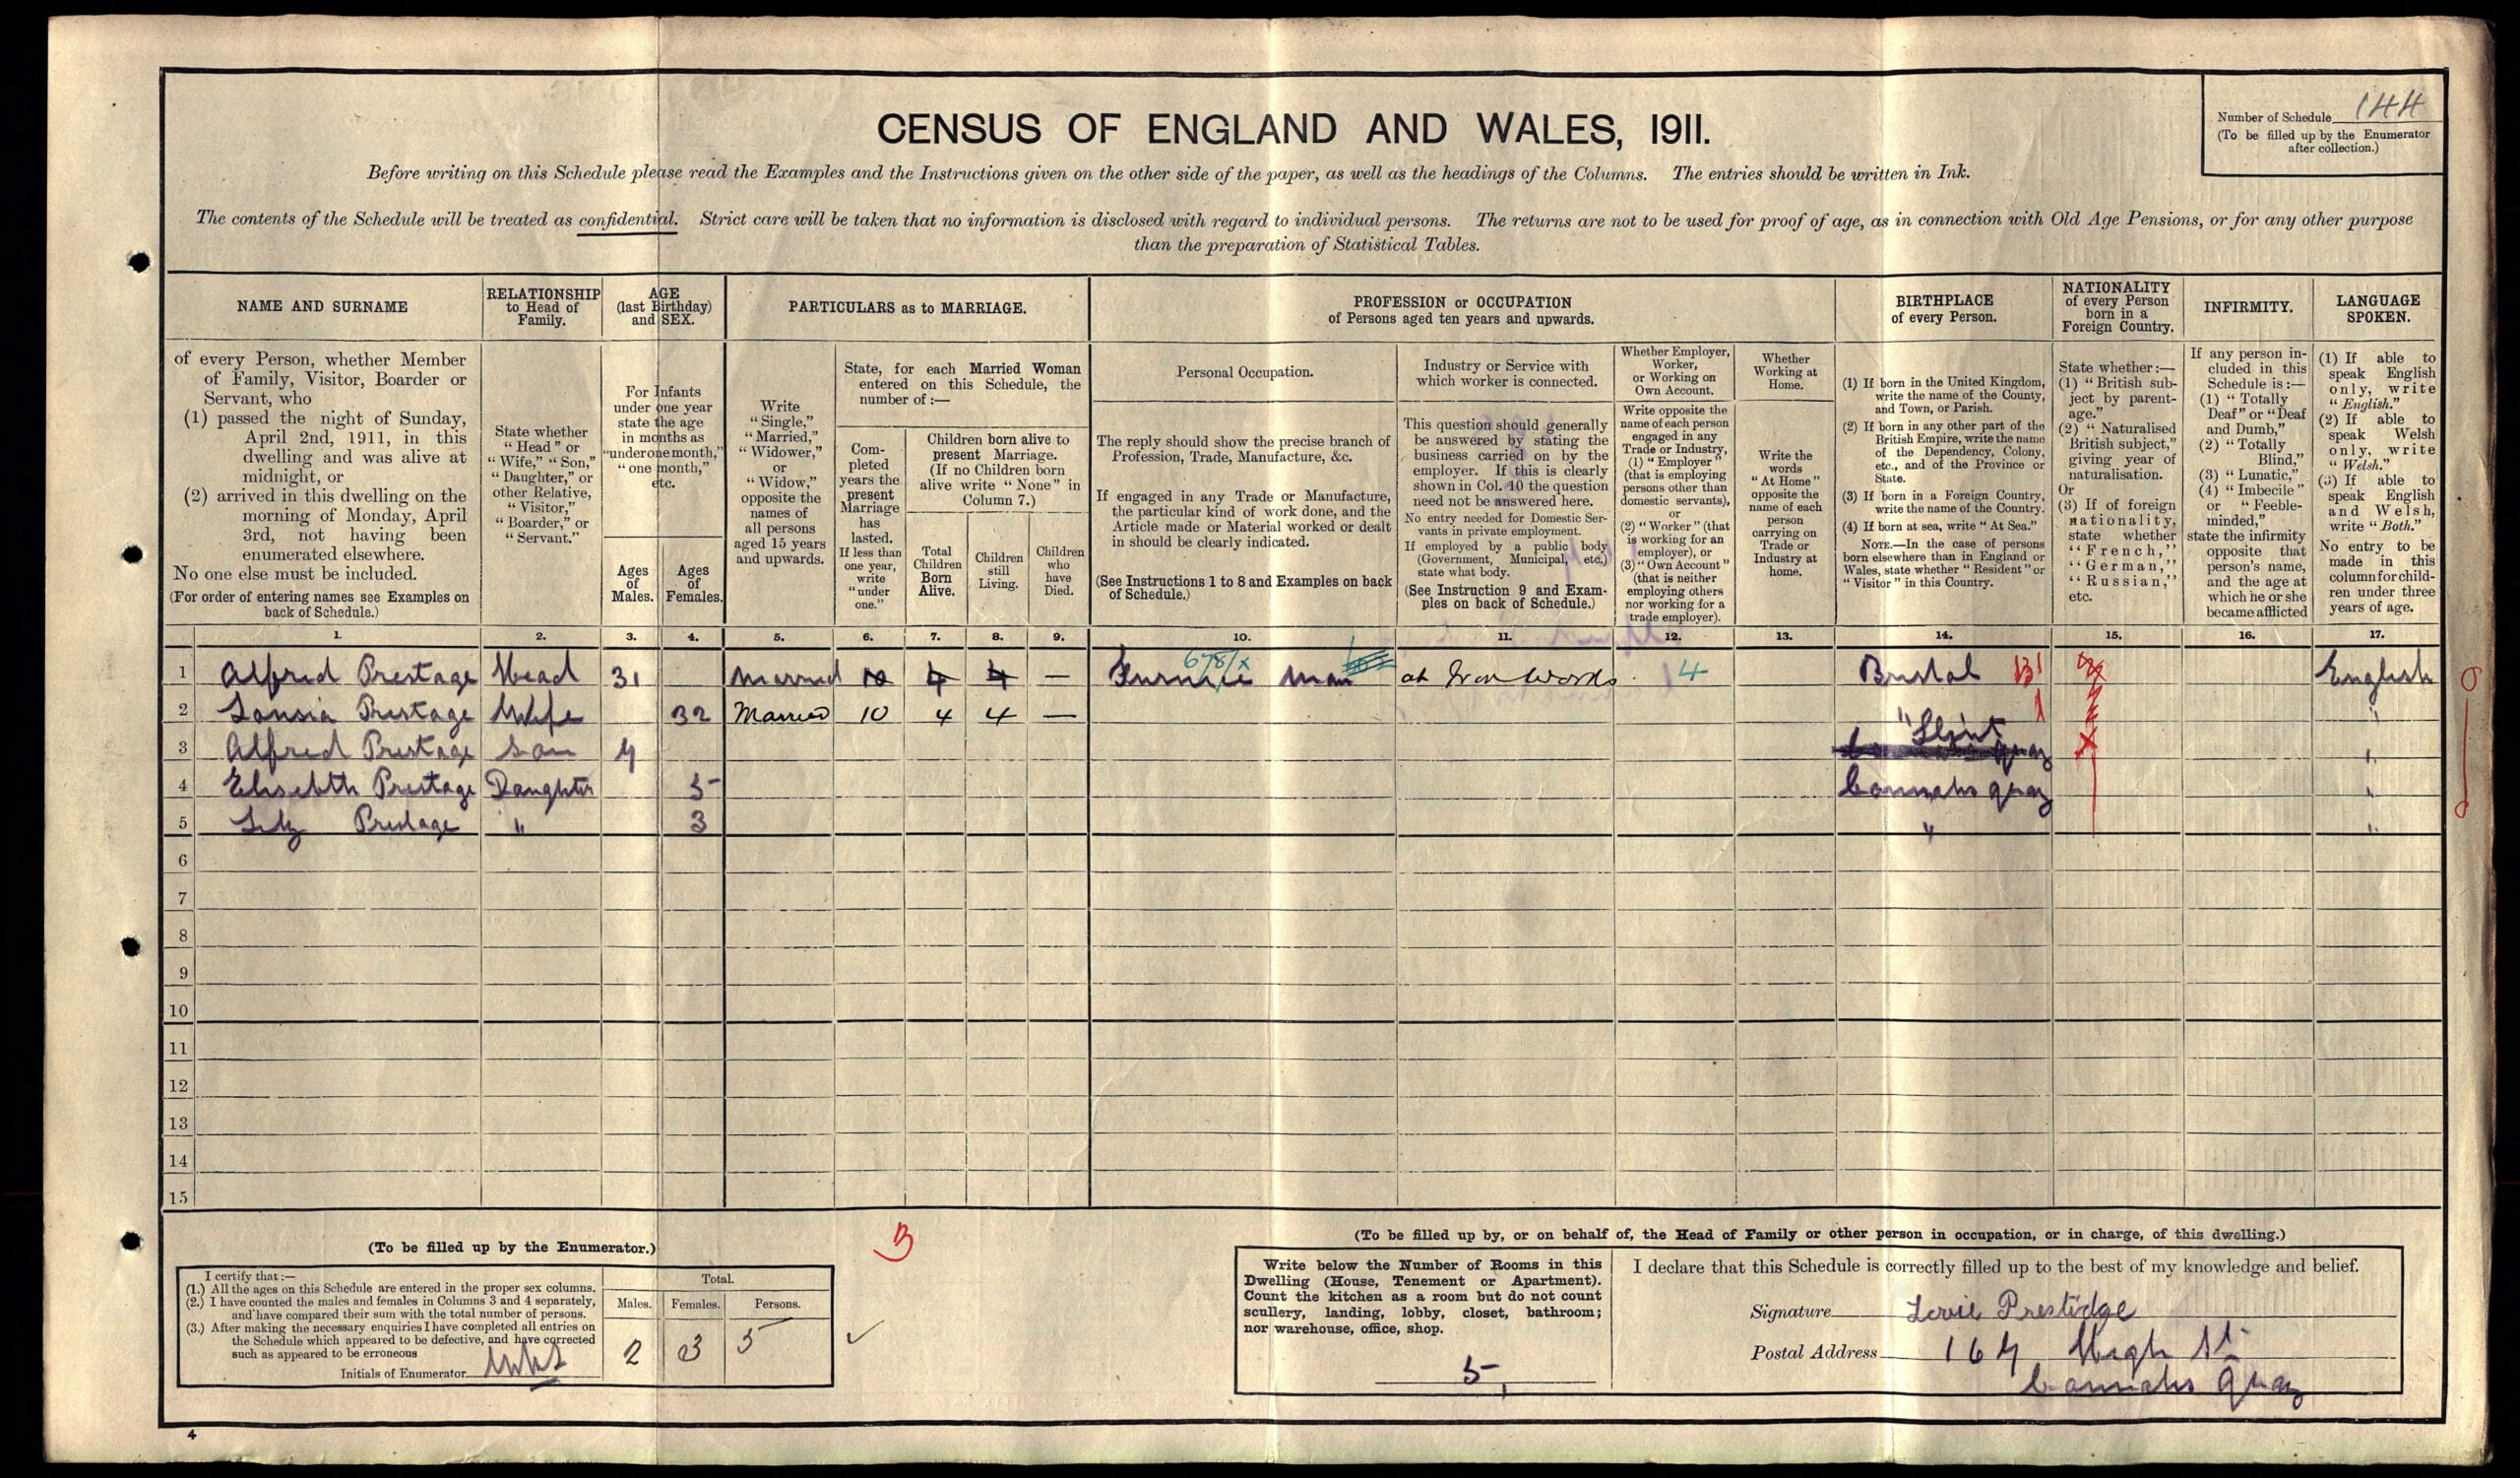 Number of Schedule 144
(To be filled up by the Enumerator
after collection.)
CENSUS OF ENGLAND AND WALES, 1911.
Before writing on this Schedule please read the Examples and the Instructions given on the other side of the paper, as well as the headings of the Columns. The entries should be written in Ink.
The contents of the Schedule will be treated as confidential. Strict care will be taken that no information is disclosed with regard to individual persons. The returns are not to be used for proof of age, as in connection with Old Age Pensions, or for any other purpose
than the preparation of Statistical Tables.
NAME AND SURNAME
of every Person, whether Member
of Family, Visitor, Boarder or
Servant, who
(1) passed the night of Sunday,
April 2nd, 1911, in this
dwelling and was alive at
midnight, or
(2) arrived in this dwelling on the
morning of Monday, April
3rd, not having been
enumerated elsewhere.
No one else must be included.
(For order of entering names see Examples on
back of Schedule.)
RELATIONSHIP
to Head of
Family.
State whether
"Head" or
"Wife," "Son,"
"Daughter," or
other Relative,
"Visitor,"
"Boarder," or
"Servant."
AGE
(last Birthday)
and SEX.
For Infants
under one year
state the age
in months as
"under one month,"
"one month,"
etc.
Ages
of
Males.
Ages
of
Females.
PARTICULARS as to MARRIAGE.
Write
"Single,"
"Married,"
"Widower,"
or
"Widow,"
opposite the
names of
all persons
aged 15 years
and upwards.
State, for each Married Woman
entered on this Schedule, the
number of :—
Com-
pleted
years the
present
Marriage
has
lasted.
If less than
one year,
write
"under
one."
Children born alive to
present Marriage.
(If no Children born
alive write "None" in
Column 7.)
Total
Children
Born
Alive.
Children
still
Living.
Children
who
have
Died.
PROFESSION or OCCUPATION
of Persons aged ten years and upwards.
Personal Occupation.
The reply should show the precise branch of
Profession, Trade, Manufacture, &c.
If engaged in any Trade or Manufacture,
the particular kind of work done, and the
Article made or Material worked or dealt
in should be clearly indicated.
(See Instructions 1 to 8 and Examples on back
of Schedule.)
Industry or Service with
which worker is connected.
This question should generally
be answered by stating the
business carried on by the
employer. If this is clearly
shown in Col. 10 the question
need not be answered here.
No entry needed for Domestic Ser-
vants in private employment.
If employed by a public body
(Government, Municipal, etc.)
state what body.
(See Instruction 9 and Exam-
ples on back of Schedule.)
Whether Employer,
Worker,
or Working on
Own Account.
Write opposite the
name of each person
engaged in any
Trade or Industry,
(1) "Employer"
(that is employing
persons other than
domestic servants),
or
(2) "Worker" (that
is working for an
employer), or
(3) "Own Account"
(that is neither
employing others
nor working for a
trade employer).
Whether
Working at
Home.
Write the
words
"At Home"
opposite the
name of each
person
carrying on
Trade or
Industry at
home.
BIRTHPLACE
of every Person.
(1) If born in the United Kingdom,
write the name of the County,
and Town, or Parish.
(2) If born in any other part of the
British Empire, write the name
of the Dependency, Colony,
etc., and of the Province or
State.
(3) If born in a Foreign Country,
write the name of the Country.
(4) If born at sea, write "At Sea."
NOTE.—In the case of persons
born elsewhere than in England or
Wales, state whether "Resident" or
"Visitor" in this Country.
NATIONALITY
of every Person
born in a
Foreign Country.
State whether :—
(1) "British sub-
ject by parent-
age."
(2) "Naturalised
British subject,"
giving year of
naturalisation.
Or
(3) If of foreign
nationality,
state whether
"French,"
"German,"
"Russian,"
etc.
INFIRMITY.
If any person in-
cluded in this
Schedule is :—
(1) "Totally
Deaf" or "Deaf
and Dumb,"
(2) "Totally
Blind,"
(3) "Lunatic,"
(4) "Imbecile"
or "Feeble-
minded,"
state the infirmity
opposite that
person's name,
and the age at
which he or she
became afflicted
LANGUAGE
SPOKEN.
(1) If able to
speak English
only, write
"English."
(2) If able to
speak Welsh
only, write
"Welsh."
(3) If able to
speak English
and Welsh,
write "Both."
No entry to be
made in this
column for child-
ren under three
years of age.
1. 2. 3. 4. 5. 6. 7. 8. 9. 10. 11. 12. 13. 14. 15. 16. 17.
1 Alfred Prestage Head 31 Married 10 4 4 — Furnace man 678/x at Iron Works 4 Bristol English
2 Prestage Wife 32 Married 10 4 4 — " "
3 Alfred Prestage Son Flint Quay "
4 Prestage Daughter 5 Connahs Quay "
5 Prestage " 3 " "
6
7
8
9
10
11
12
13
14
15
(To be filled up by the Enumerator.)
I certify that :—
(1.) All the ages on this Schedule are entered in the proper sex columns.
(2.) I have counted the males and females in Columns 3 and 4 separately,
and have compared their sum with the total number of persons.
(3.) After making the necessary enquiries I have completed all entries on
the Schedule which appeared to be defective, and have corrected
such as appeared to be erroneous
Initials of Enumerator
Total.
Males. Females. Persons.
2 3 5
(To be filled up by, or on behalf of, the Head of Family or other person in occupation, or in charge, of this dwelling.)
Write below the Number of Rooms in this
Dwelling (House, Tenement or Apartment).
Count the kitchen as a room but do not count
scullery, landing, lobby, closet, bathroom;
nor warehouse, office, shop.
5
I declare that this Schedule is correctly filled up to the best of my knowledge and belief.
Signature Lovie Prestidge
Postal Address High St
Connahs Quay
4